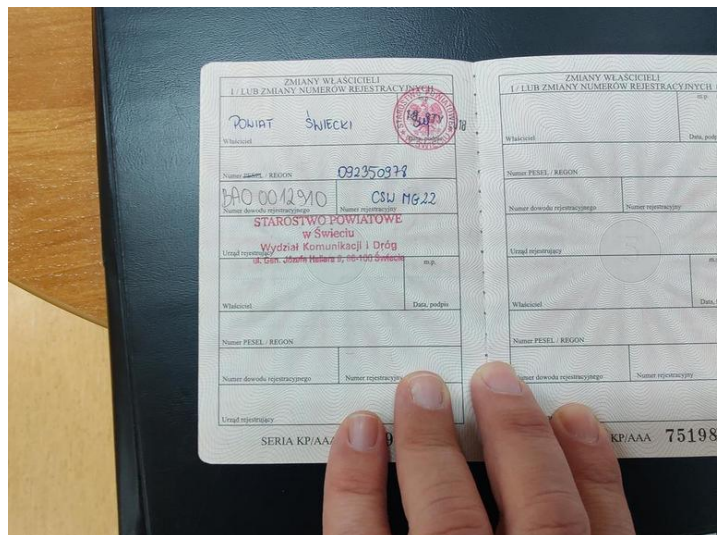 ZMIANY WŁAŚCICIELI
I / LUB ZMIANY NUMERÓW REJESTRACYJNYCH
POWIAT ŚWIECKI
Właściciel
Numer PESEL / REGON 092350978
BAO 0012910 CSW MG22
Numer dowodu rejestracyjnego Numer rejestracyjny
STAROSTWO POWIATOWE
w Świeciu
Wydział Komunikacji i Dróg
Urząd rejestrujący
ul. Gen. Józefa Hallera 2, 86-100 Świecie
m.p.
Właściciel Data, podpis
Numer PESEL / REGON
Numer dowodu rejestracyjnego Numer rejestracyjny
Urząd rejestrujący
SERIA KP/AAA
ZMIANY WŁAŚCICIELI
I / LUB ZMIANY NUMERÓW REJESTRACYJNYCH
m.p.
Właściciel Data,
Numer PESEL / REGON
Numer dowodu rejestracyjnego Numer rejestracyjny
Urząd rejestrujący
Właściciel Data,
Numer PESEL / REGON
Numer dowodu rejestracyjnego Numer rejestracyjny
KP/AAA 75198